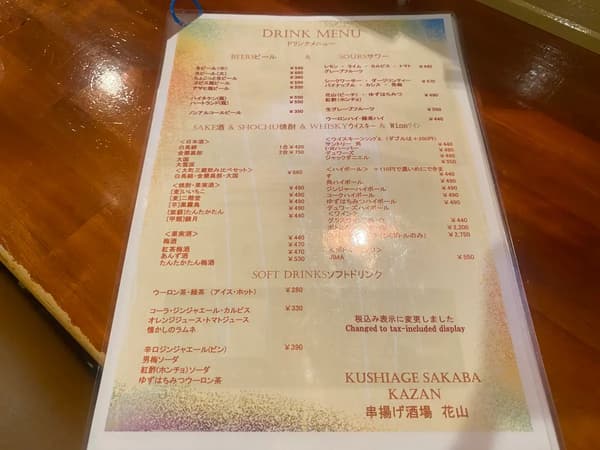 DRINK MENU
ドリンクメニュー
BEERSビール & SOURSサワー
生ビール(中) ¥540
生ビール(大)
ちょこっと生ビール
ヱビス瓶ビール
アサヒ瓶ビール
ハイネケン(瓶) ¥550
ハートランド(瓶) ¥590
ノンアルコールビール ¥390
レモン・ライム・カルピス・トマト ¥440
グレープフルーツ
シークワーサー・ダージリンティー ¥470
パイナップル・カシス・男梅
花山(ピーチ)・ゆずはちみつ ¥490
紅酢(ホンチョ)
生グレープフルーツ ¥550
ウーロンハイ・緑茶ハイ ¥440
SAKE酒 & SHOCHU焼酎 & WHISKYウイスキー & Wineワイン
<日本酒>
白馬錦 1合¥420
金蘭黒部 2合¥750
大国
大雪渓
<大町三蔵飲み比べセット> ¥680
白馬錦・金蘭黒部・大国
<焼酎・果実酒>
[麦]いいちこ ¥490
[麦]二階堂 ¥490
[芋]黒霧島 ¥490
[紫蘇]たんたかたん ¥490
[甲類]鏡月 ¥440
<果実酒>
梅酒 ¥440
紅茶梅酒 ¥470
あんず酒 ¥470
たんたかたん梅酒 ¥530
サントリー 角
デュワーズ ¥490
ジャックダニエル ¥550
<ハイボール>
角ハイボール ¥490
ジンジャーハイボール ¥490
コークハイボール ¥490
ゆずはちみつハイボール ¥490
デュワーズハイボール ¥490
<ワイン>
¥440
¥2,200
¥2,750
ZIMA ¥550
SOFT DRINKSソフトドリンク
ウーロン茶・緑茶 (アイス・ホット) ¥280
コーラ・ジンジャエール・カルピス ¥330
オレンジジュース・トマトジュース
懐かしのラムネ
辛口ジンジャエール(ビン) ¥390
男梅ソーダ
紅酢(ホンチョ)ソーダ
ゆずはちみつウーロン茶
税込み表示に変更しました
Changed to tax-included display
KUSHIAGE SAKABA
KAZAN
串揚げ酒場 花山